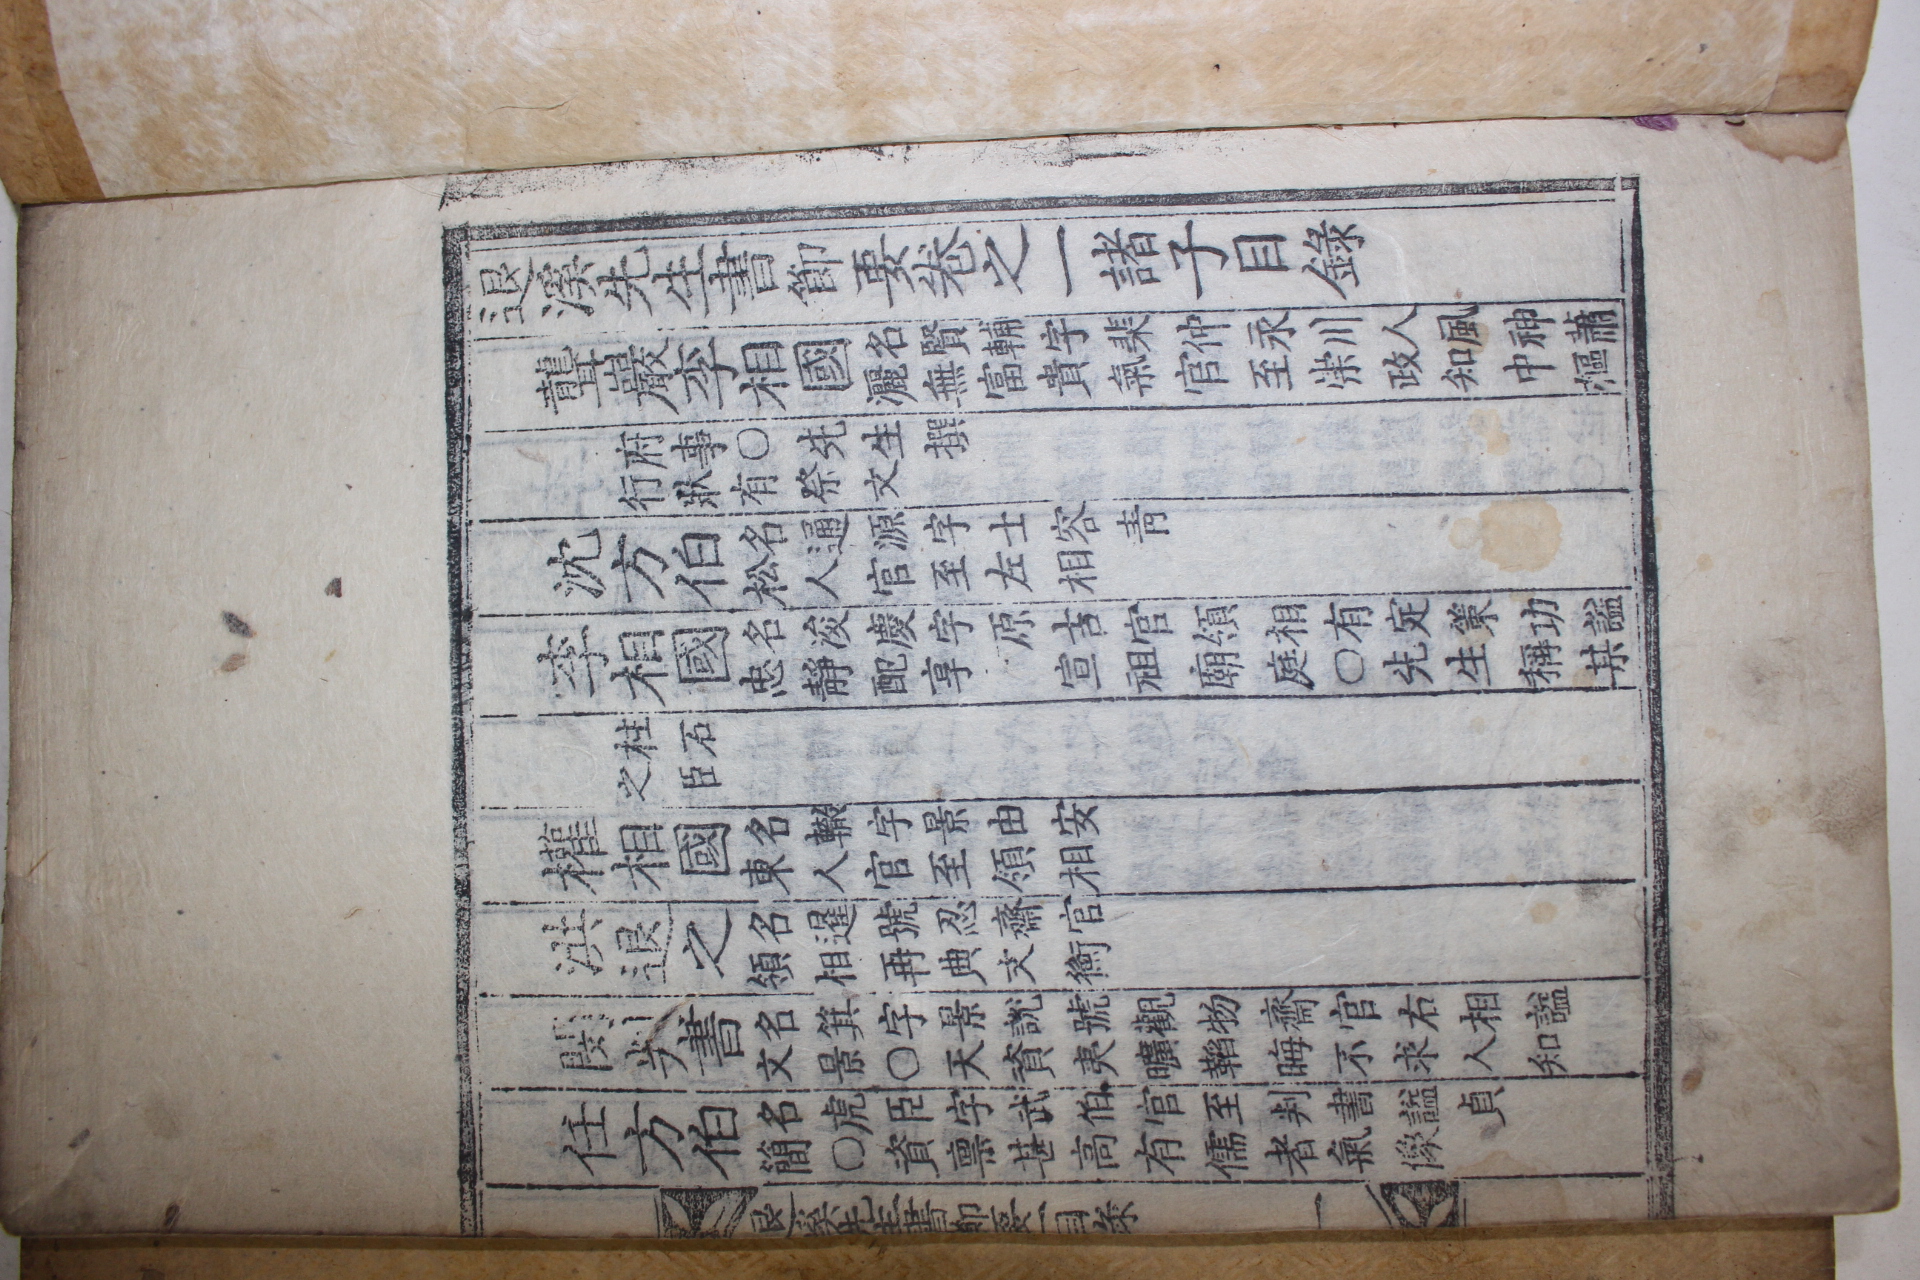 退溪先生書節要卷之一諸子目錄
聾巖李相國
名賢輔字棐仲永川人風神蕭
灑無富貴氣官至崇政知中樞
府事○先生撰
行狀有祭文
沈方伯
名通源字士容青
松人官至左相
李相國
名浚慶字原吉官領相有定策功謚
忠靜配享宣祖廟庭○先生稱某
柱石
之臣
權相國
名轍字景由安
東人官至領相
洪退之
名暹號忍齋官
領相再典文衡
閔判書
名箕字景說號觀物齋官右相謚
文景○天資夷曠韜晦不求人知
任方伯
名虎臣字武伯官至判書謚貞
簡○資稟甚高有儒者氣像
退溪先生書節要一目錄 一